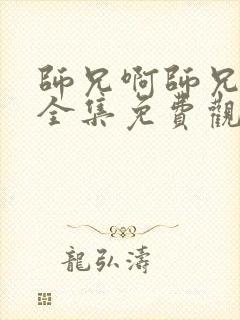 師兄啊師兄
全集免費觀
龍弘濤